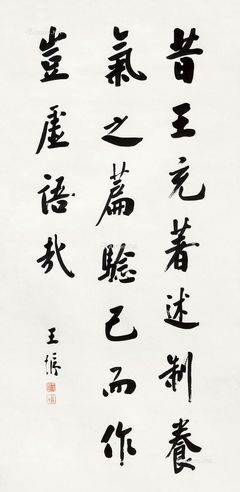 昔王充著述制養
氣之篇驗己而作
豈虛語哉
王㒜